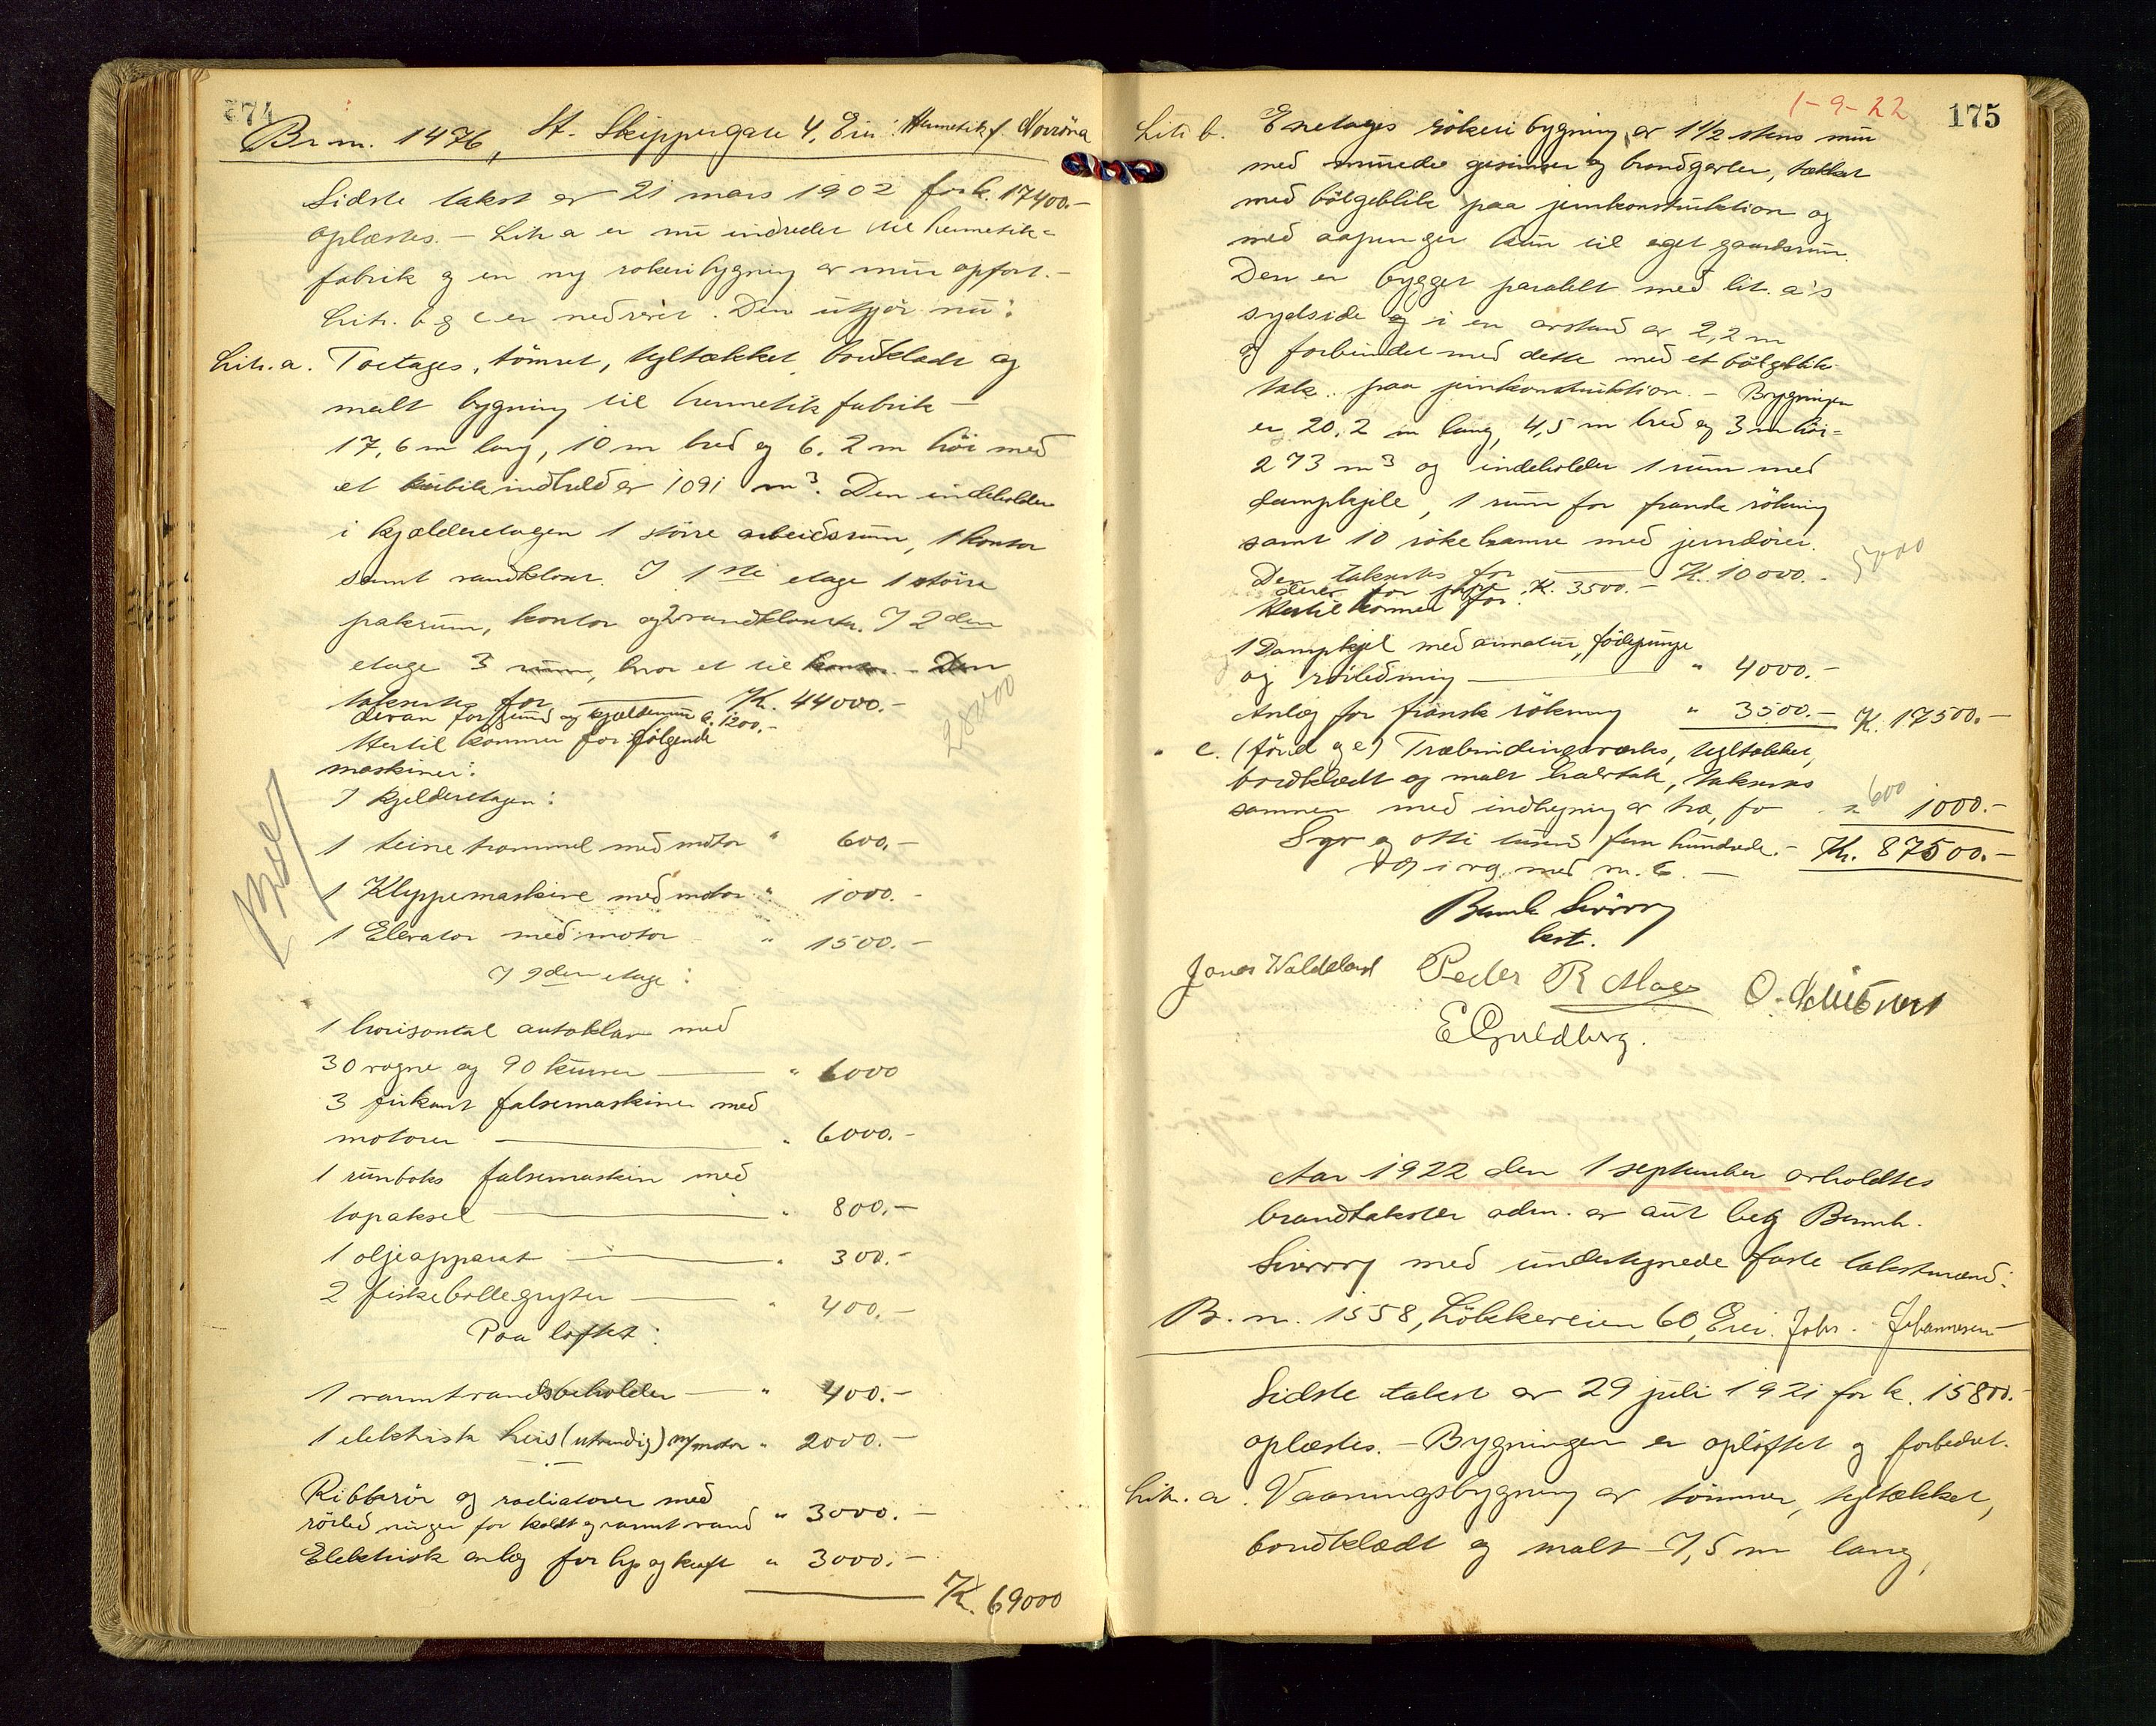 174
Br. nr. 1476, St. Skippergate 4, Eier: Hermetikf. Norröna
Sidste takst av 21 mars 1902 for k. 17400.-
oplæstes. - Litr. a er nu indredet til hermetik-
fabrik og en ny rökeribygning av mur opfört. -
Litr. b og c er nedrevet. Den utgjör nu:
Litr. a. Toetages, tömret, tegltækket, bordklædt og
malt bygning til hermetikfabrik -
17,6 m lang, 10 m bred og 6,2 m höi med
et kubikindhold av 1091 m³. Den indeholder
i kjælderetagen 1 större arbeidsrum, 1 kontor
samt vandkloset. I 1ste etage 1 större
pakrum, kontor og 2 vandklosetter. I 2den
etage 3 rum, hvor et til kontor. - Den
taksertes for K. 44000.-
derav for grund og kjældermur k. 1200.-
Hertil kommer for følgende
maskiner:
28000
I kjelderetagen:
1 teinetrommel med motor " 600.-
1 Klippemaskine med motor " 1000.-
1 Elevator med motor " 1500.-
I 2den etage:
1 horisontal autoklav med
30 vogne og 90 kurver " 6000
3 firkant falsemaskiner med
motorer " 6000.-
1 rundboks falsemaskin med
topaksel " 800.-
1 oljeapparat " 300.-
2 fiskebollegryter " 400.-
Paa loftet:
1 varmtvandsbeholder " 400.-
1 elektrisk heis (utvendig) m/motor " 2000.-
Ribberör og radiatorer med
rörledninger for koldt og varmt vand " 3000.-
Elektrisk anlæg for lys og kraft " 3000.-
K. 69000
1-9-22
175
Litr. b. Enetages rökeribygning av 1 1/2 stens mur
med murede gesimser og brandgavler, tækket
med bölgeblik paa jernkonstruktion og
med aapninger kun til eget gaardsrum.
Den er bygget paralelt med lit. a's
sydside og i en avstand av 2,2 m
og forbindet med dette med et bölgeblik-
tak paa jernkonstruktion. - Bygningen
er 20,2 m lang, 4,5 m bred og 3 m höi =
273 m³ og indeholder 1 rum med
dampkjele, 1 rum for fransk rökning
samt 10 rökekamre med jerndörer.
Den taksertes for K. 10000.-
5000
derav for K. 3500.-
Hertil kommer for:
1 Dampkjel med armatur, födepumpe
og rörledning " 4000.-
Anlæg for fransk rökning " 3500.- K. 17500.-
" c. (för d og e) Træbindingsverks, tegltækket,
bordklædt og malt halvtak, taksertes
sammen med indhegning av træ, for " 1000.-
600
Syv og otti tusind fem hundrede. - Kr. 87500.-
i rg. med nr. 6. -
Bernh. Sivorry
best.
Jonas Waldeland Peder R. Moe
E Guldberg.
Aar 1922 den 1 september avholdtes
brandtakster adm. av aut. beg. Bernh.
Sivorry med undertegnede faste takstmænd:
B. nr. 1558, Lökkeveien 60, Eier: Johs. Johannesen
Sidste takst av 29 juli 1921 for k. 15800.-
oplæstes. - Bygningen er oplöftet og forbedret.
Litr. a. Vaaningsbygning av tömmer, tegltækket,
bordklædt og malt - 7,5 m lang,